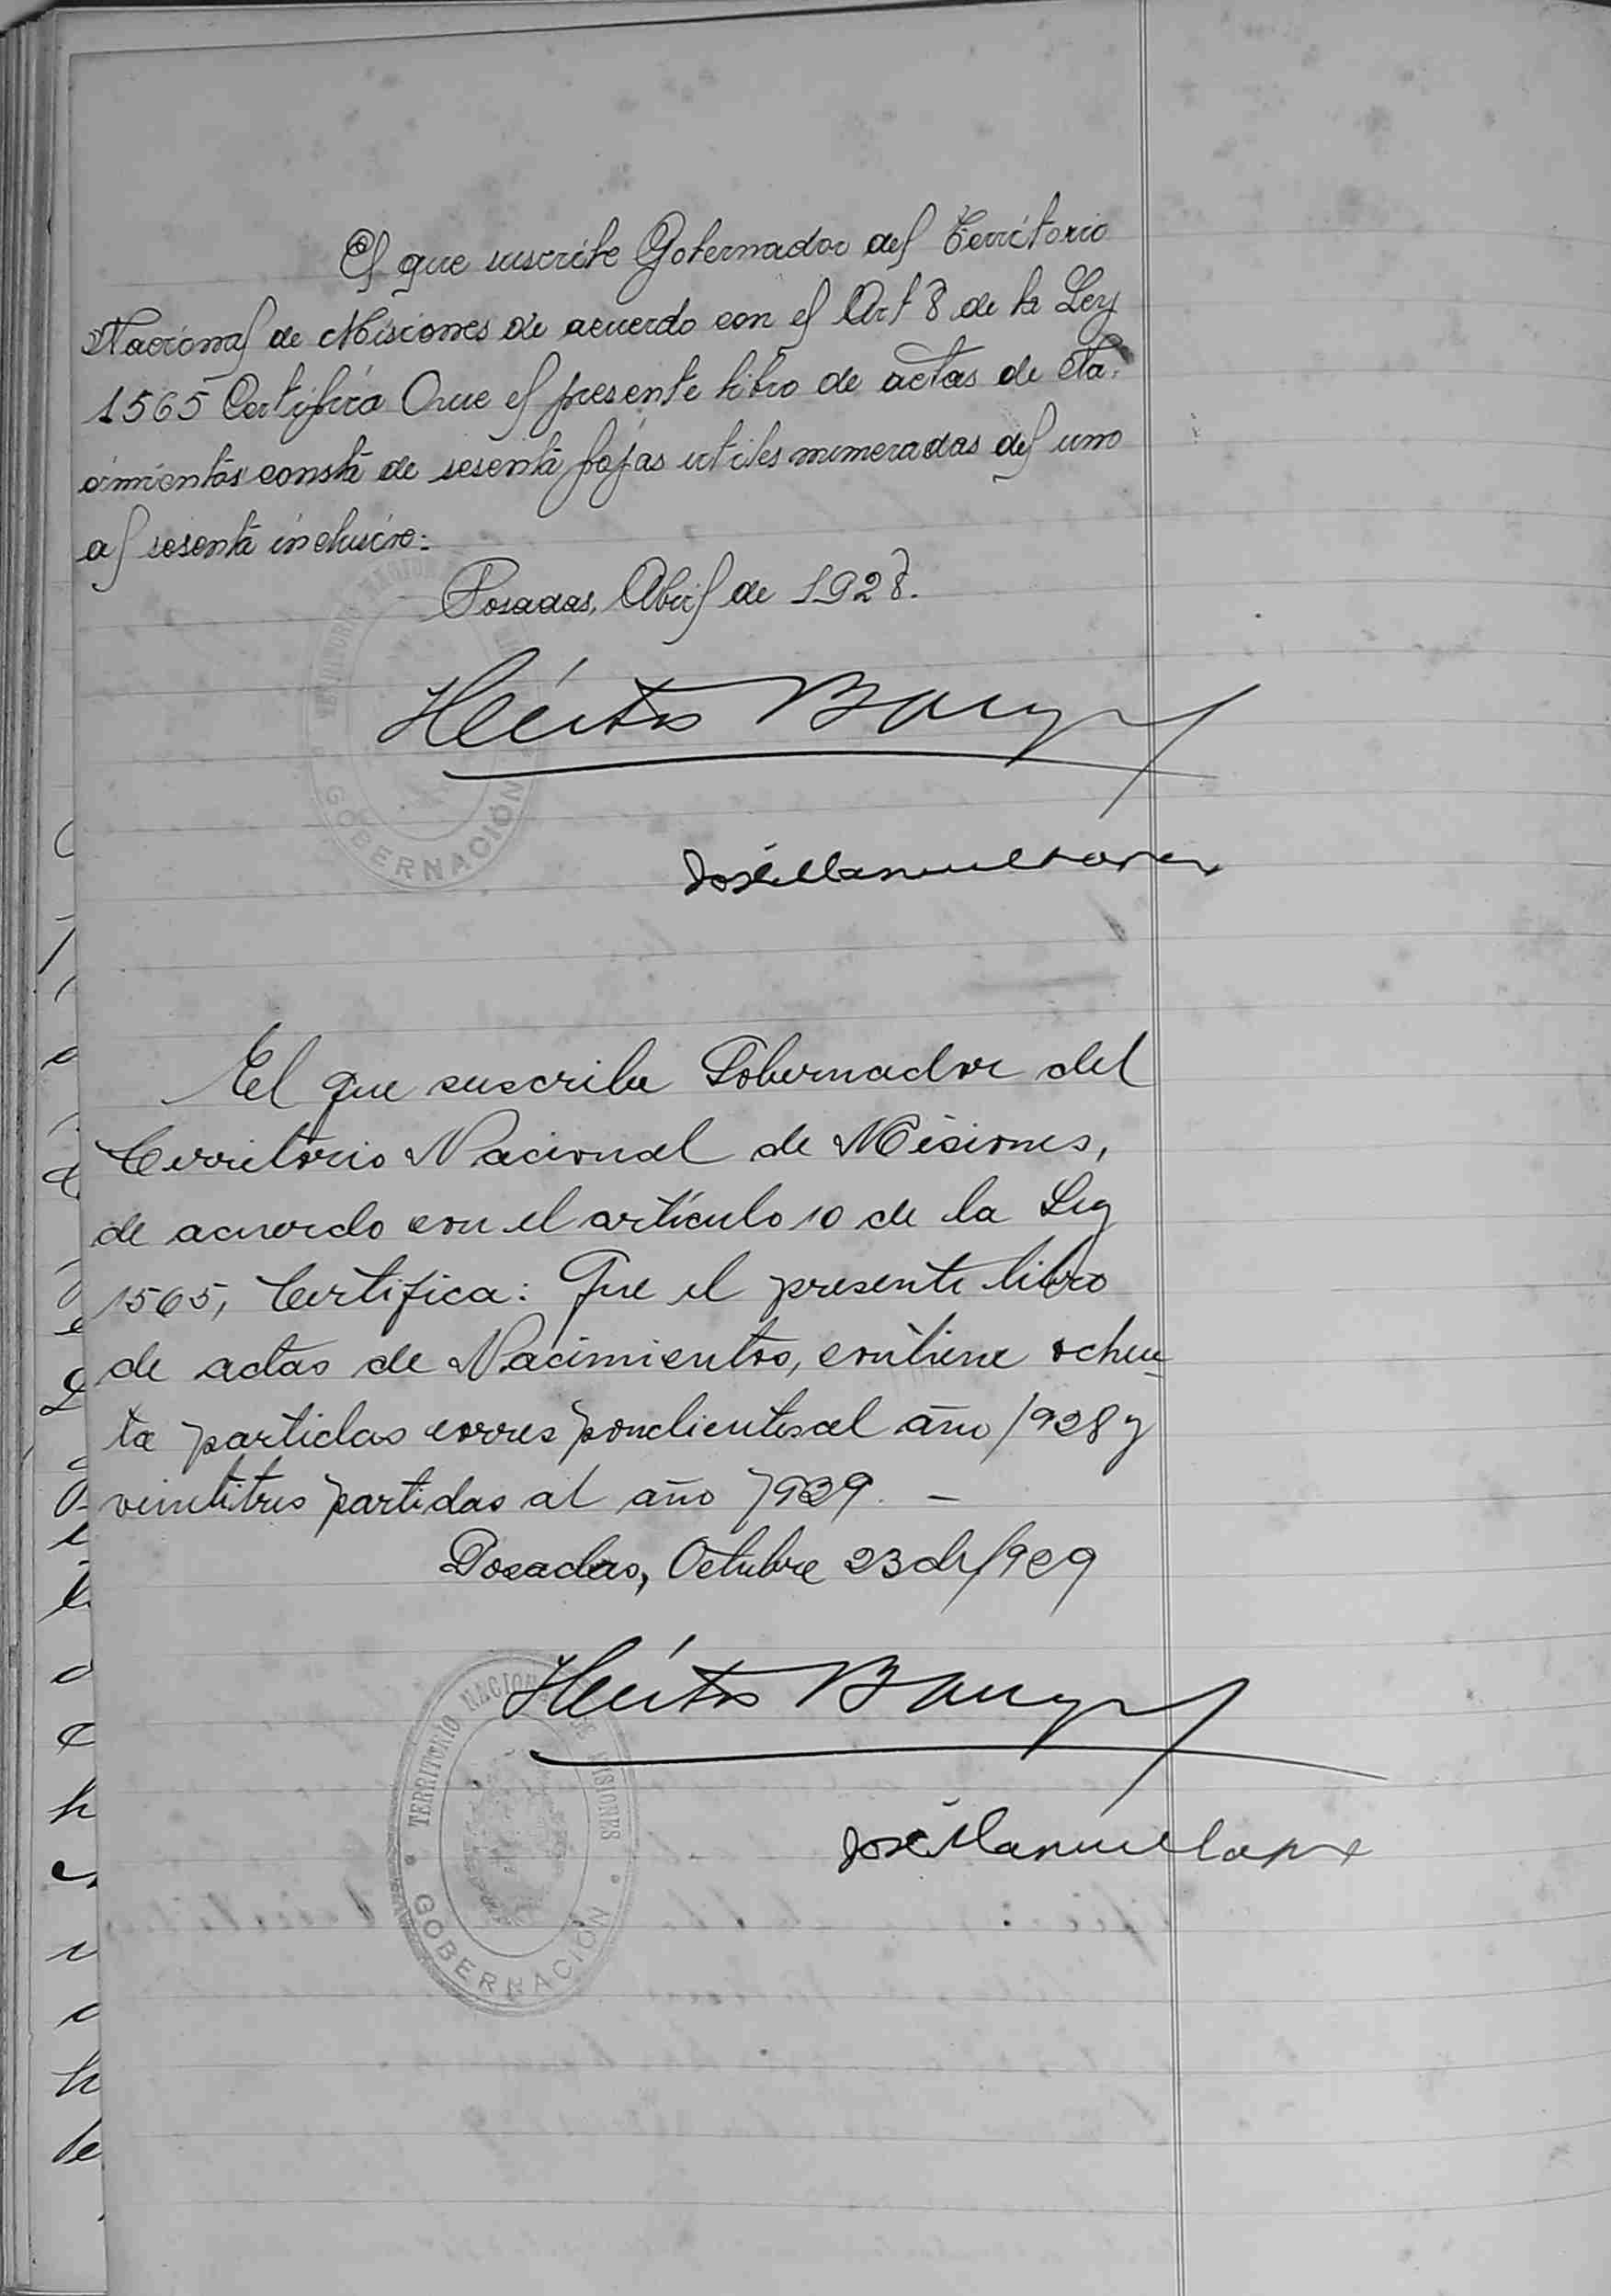 El que suscribe Gobernador del Territorio
Nacional de Misiones de acuerdo con el Art 8 de la Ley
1565 Certifica Que el presente libro de actas de Na-
cimientos consta de sesenta fojas utiles numeradas del uno
al sesenta inclusive.
Posadas, Abril de 1928.
TERRITORIO NACIONAL
GOBERNACIÓN
Héctor Barreyro
José Manuel
El que suscribe Gobernador del
Territorio Nacional de Misiones,
de acuerdo con el artículo 10 de la Ley
1565, Certifica: Que el presente libro
de actas de Nacimientos, contiene ochen
ta partidas correspondientes al año 1928 y
veintitres partidas al año 1929. —
Posadas, Octubre 23 de 1929
Héctor Barreyro
TERRITORIO NACIONAL DE MISIONES
GOBERNACIÓN
José Manuel